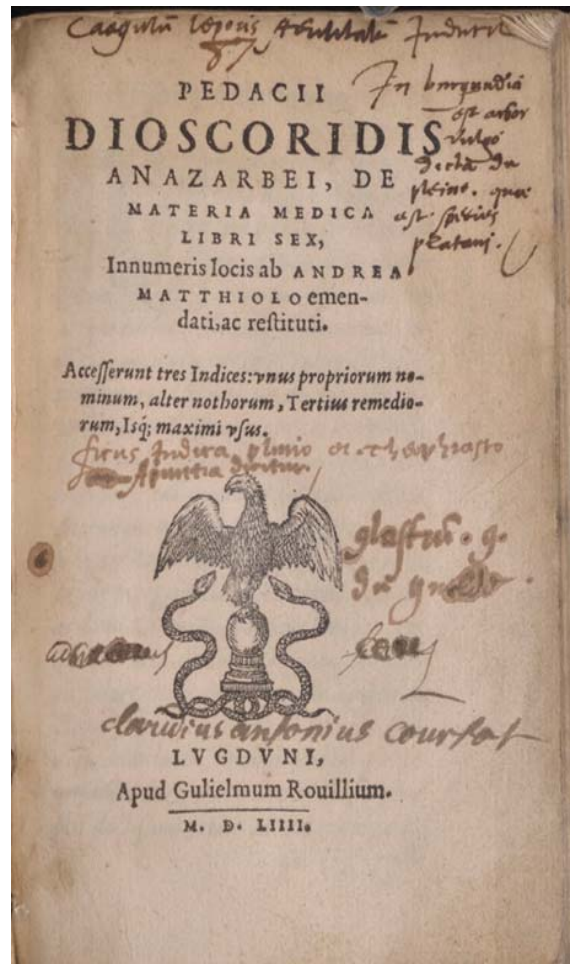 Coagulū leporis
In burgundia
est arbor
vulgo
dicta du
pleine. quae
est species
platani.
PEDACII
DIOSCORIDIS
ANAZARBEI, DE
MATERIA MEDICA
LIBRI SEX,
Innumeris locis ab ANDREA
MATTHIOLO emen-
dati, ac reſtituti.
Acceſſerunt tres Indices: vnus propriorum no-
minum, alter nothorum, Tertius remedio-
rum, Isq́; maximi vſus.
ficus Indica plinio et theophrasto
Apuntia dicitur.
glastū. g.
du
claudius antonius courfat
LVGDVNI,
Apud Gulielmum Rouillium.
M. D. LIIII.